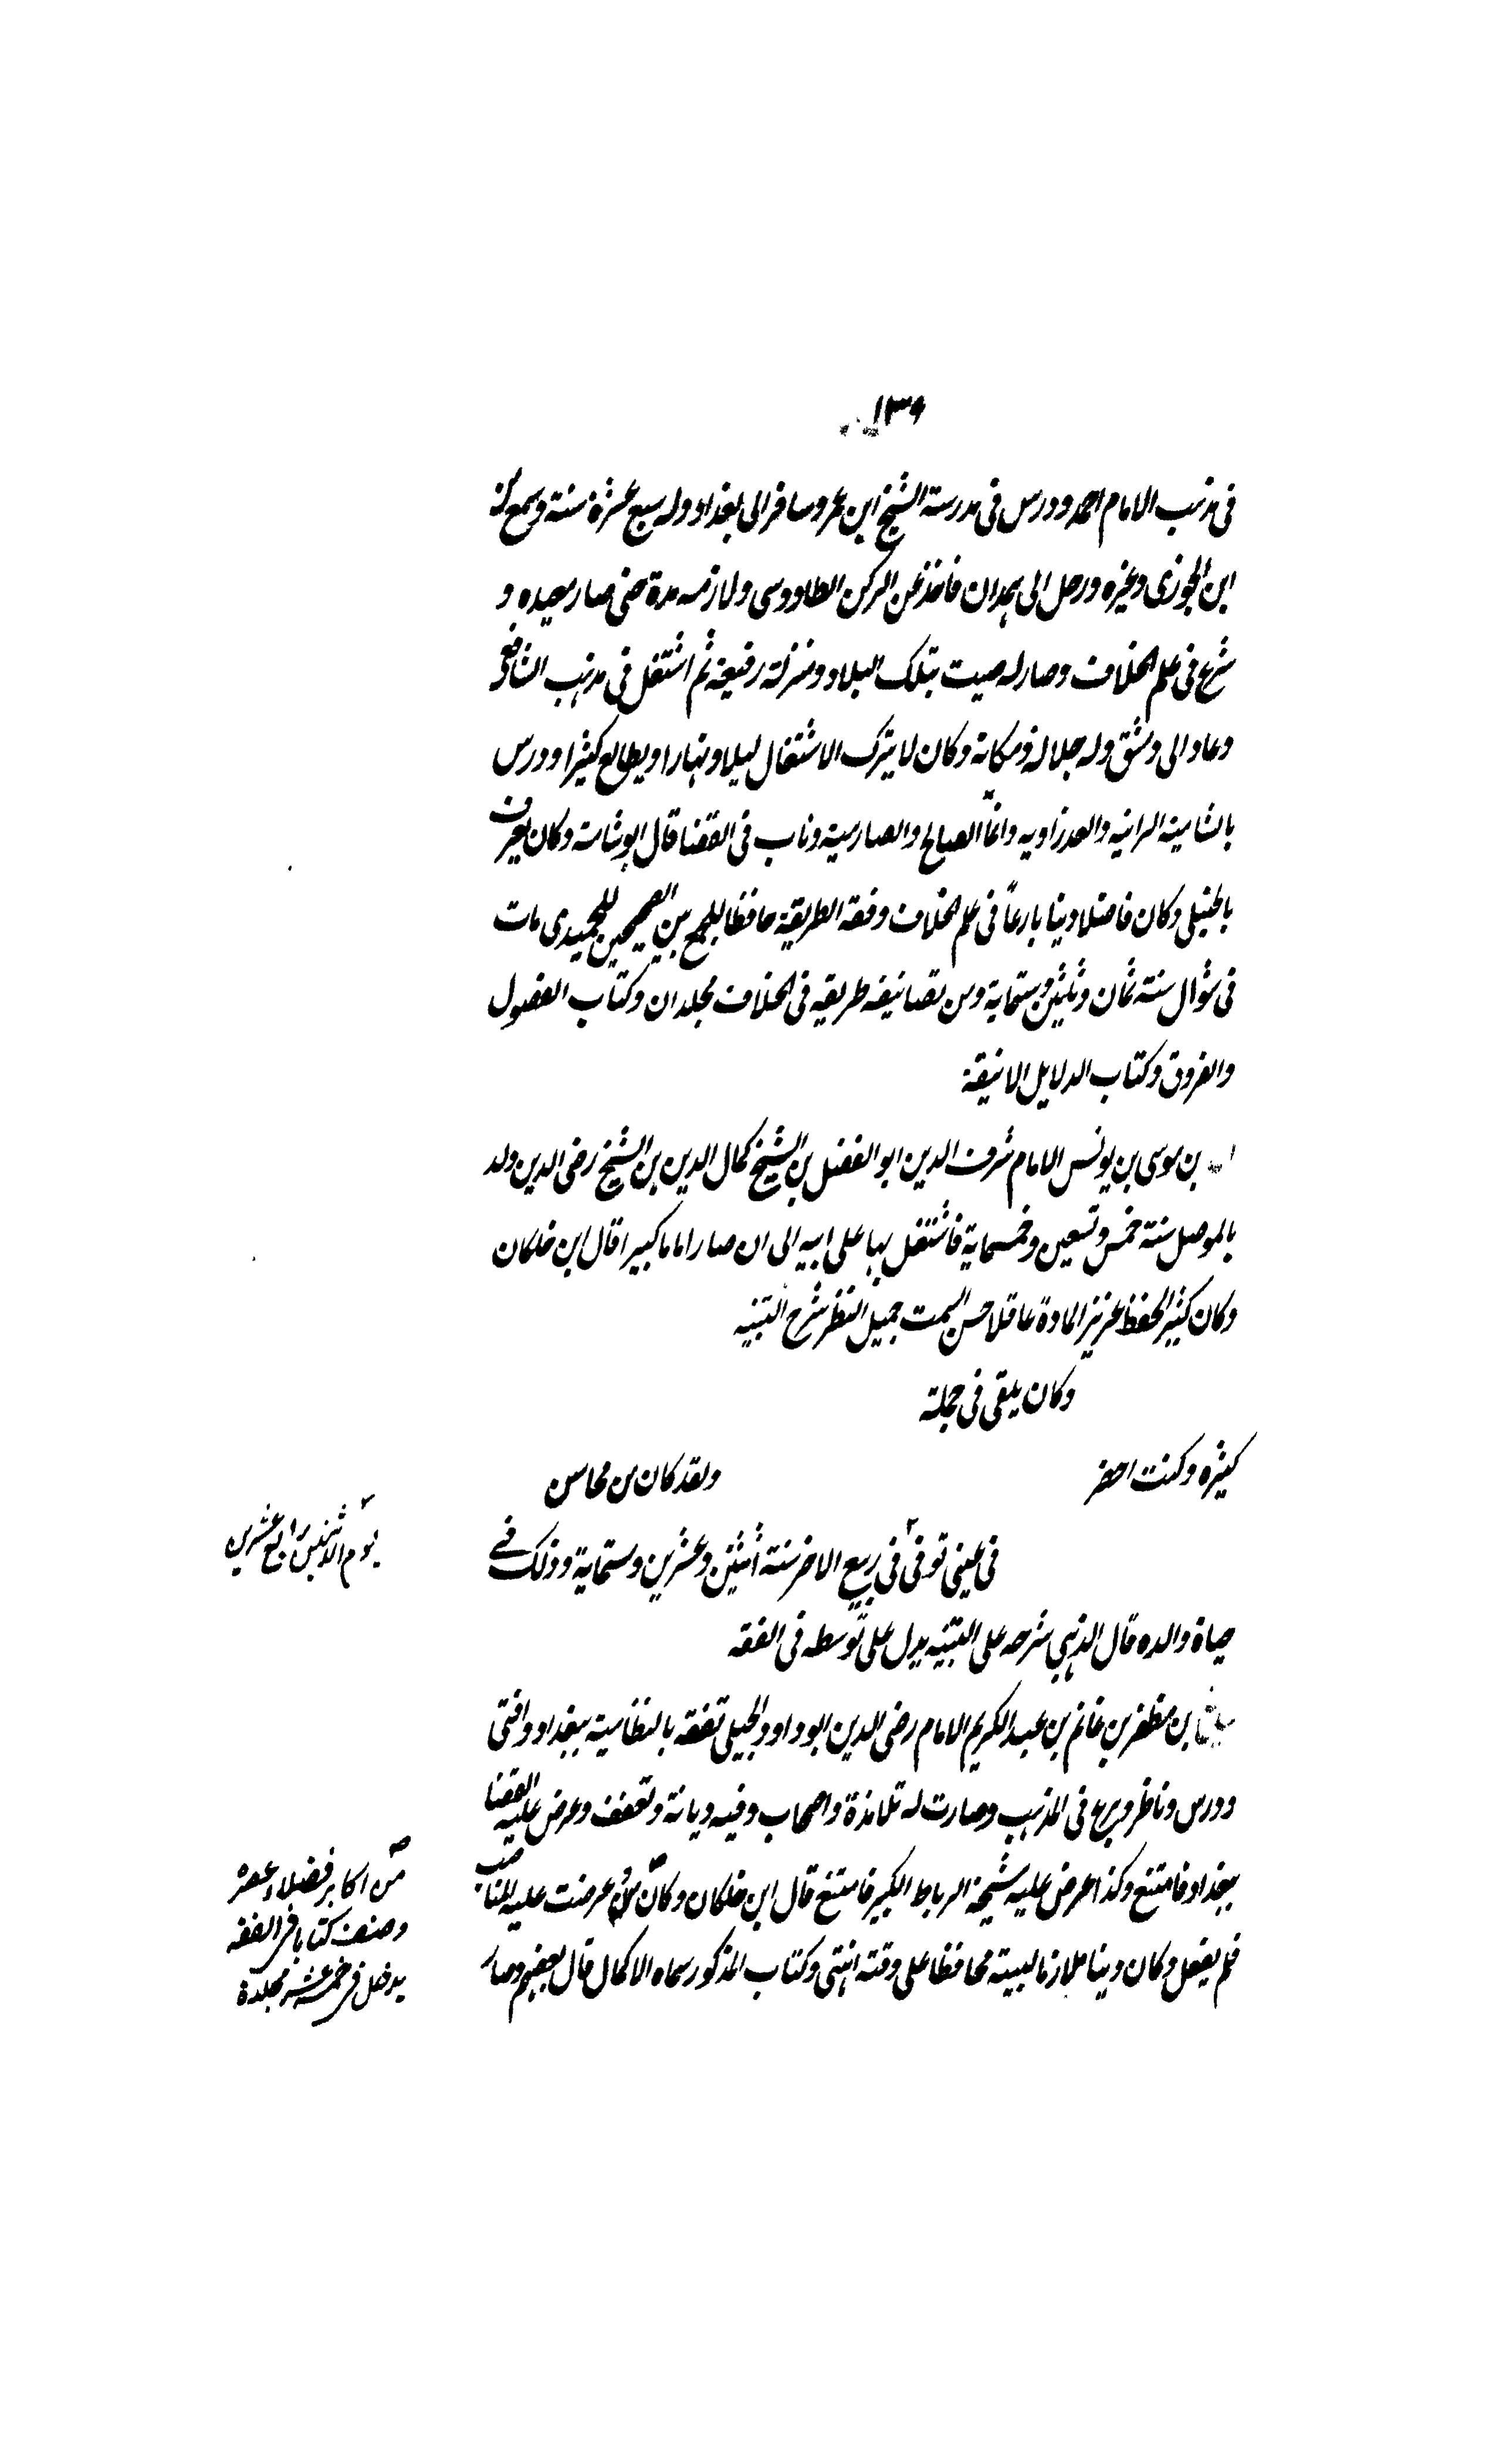 ١٣٩
فى مذهب الامام احمد ودرس فى مدرسة الشيخ ابن عمر وسافر الى بغداد وله سبع عشرة سنة وسمع من
ابن الجوزى وغيره ورحل الى همدان فاخذ عن الركن الطاووسى ولازمه مدة حتى صار معيده و
شرع فى علم الخلاف وصار له صيت بتلك البلاد ومنزلة رفيعة ثم اشتغل فى مذهب الشافعى
وعاد الى دمشق وله جلالة ومكانة وكان لا يترك الاشتغال ليلا ونهارا ويطالع كثيرا ودرس
بالشامية البرانية والعذراويه وام الصالح والصارمية وناب فى القضا قال ابو شامة وكان يعرف
بالحنبلى وكان فاضلا دينا بارعاً فى علم الخلاف وفقه الطريقة حافظا للجمع بين الصحيحين للحميدى مات
فى شوال سنة ثمان وثلثين وستماية ومن تصانيفه طريقه فى الخلاف مجلدان وكتاب الفصول
والفروق وكتاب الدلايل الانيقة
بن موسى بن يونس الامام شرف الدين ابو الفضل بن الشيخ كمال الدين بن الشيخ رضى الدين ولد
بالموصل سنة خمس وتسعين وخمسماية فاشتغل بها على ابيه الى ان صار اماما كبيرا قال ابن خلكان
وكان كثير الحفظ غزير المادة عاقلا حسن السمت جميل المنظر شرح التنبيه
وكان يلقى فى جملة
كثيره وكنت احضر ولقد كان من محاسن
فى عينى توفى فى ربيع الاخر سنة اثنين وعشرين وستماية وذلك فى
يوم الاثنين رابع عشرين
حياة والده قال الذهبى شرحه على التنبيه يدل على توسطه فى الفقه
بن مظفر بن غانم بن عبد الكريم الامام رضى الدين ابو داود الجيلى تفقه بالنظامية ببغداد وافتى
ودرس وناظر وبرع فى المذهب وصارت له تلامذة واصحاب وفيه ديانة وتعفف وعرض عليه القضا
ببغداد فامتنع وكذا عرض عليه مشيخة الرباط الكبير فامتنع قال ابن خلكان وكان عرضت عليه المناصب
فلم يفعل وكان دينا ملازما لبيته محافظا على وقته انتهى وكتاب المذكور سماه الاكمال قال بعضهم وصار
من اكابر فضلاء عصره
وصنف كتابا فى الفقه
يدخل فى خمسة عشر مجلدة